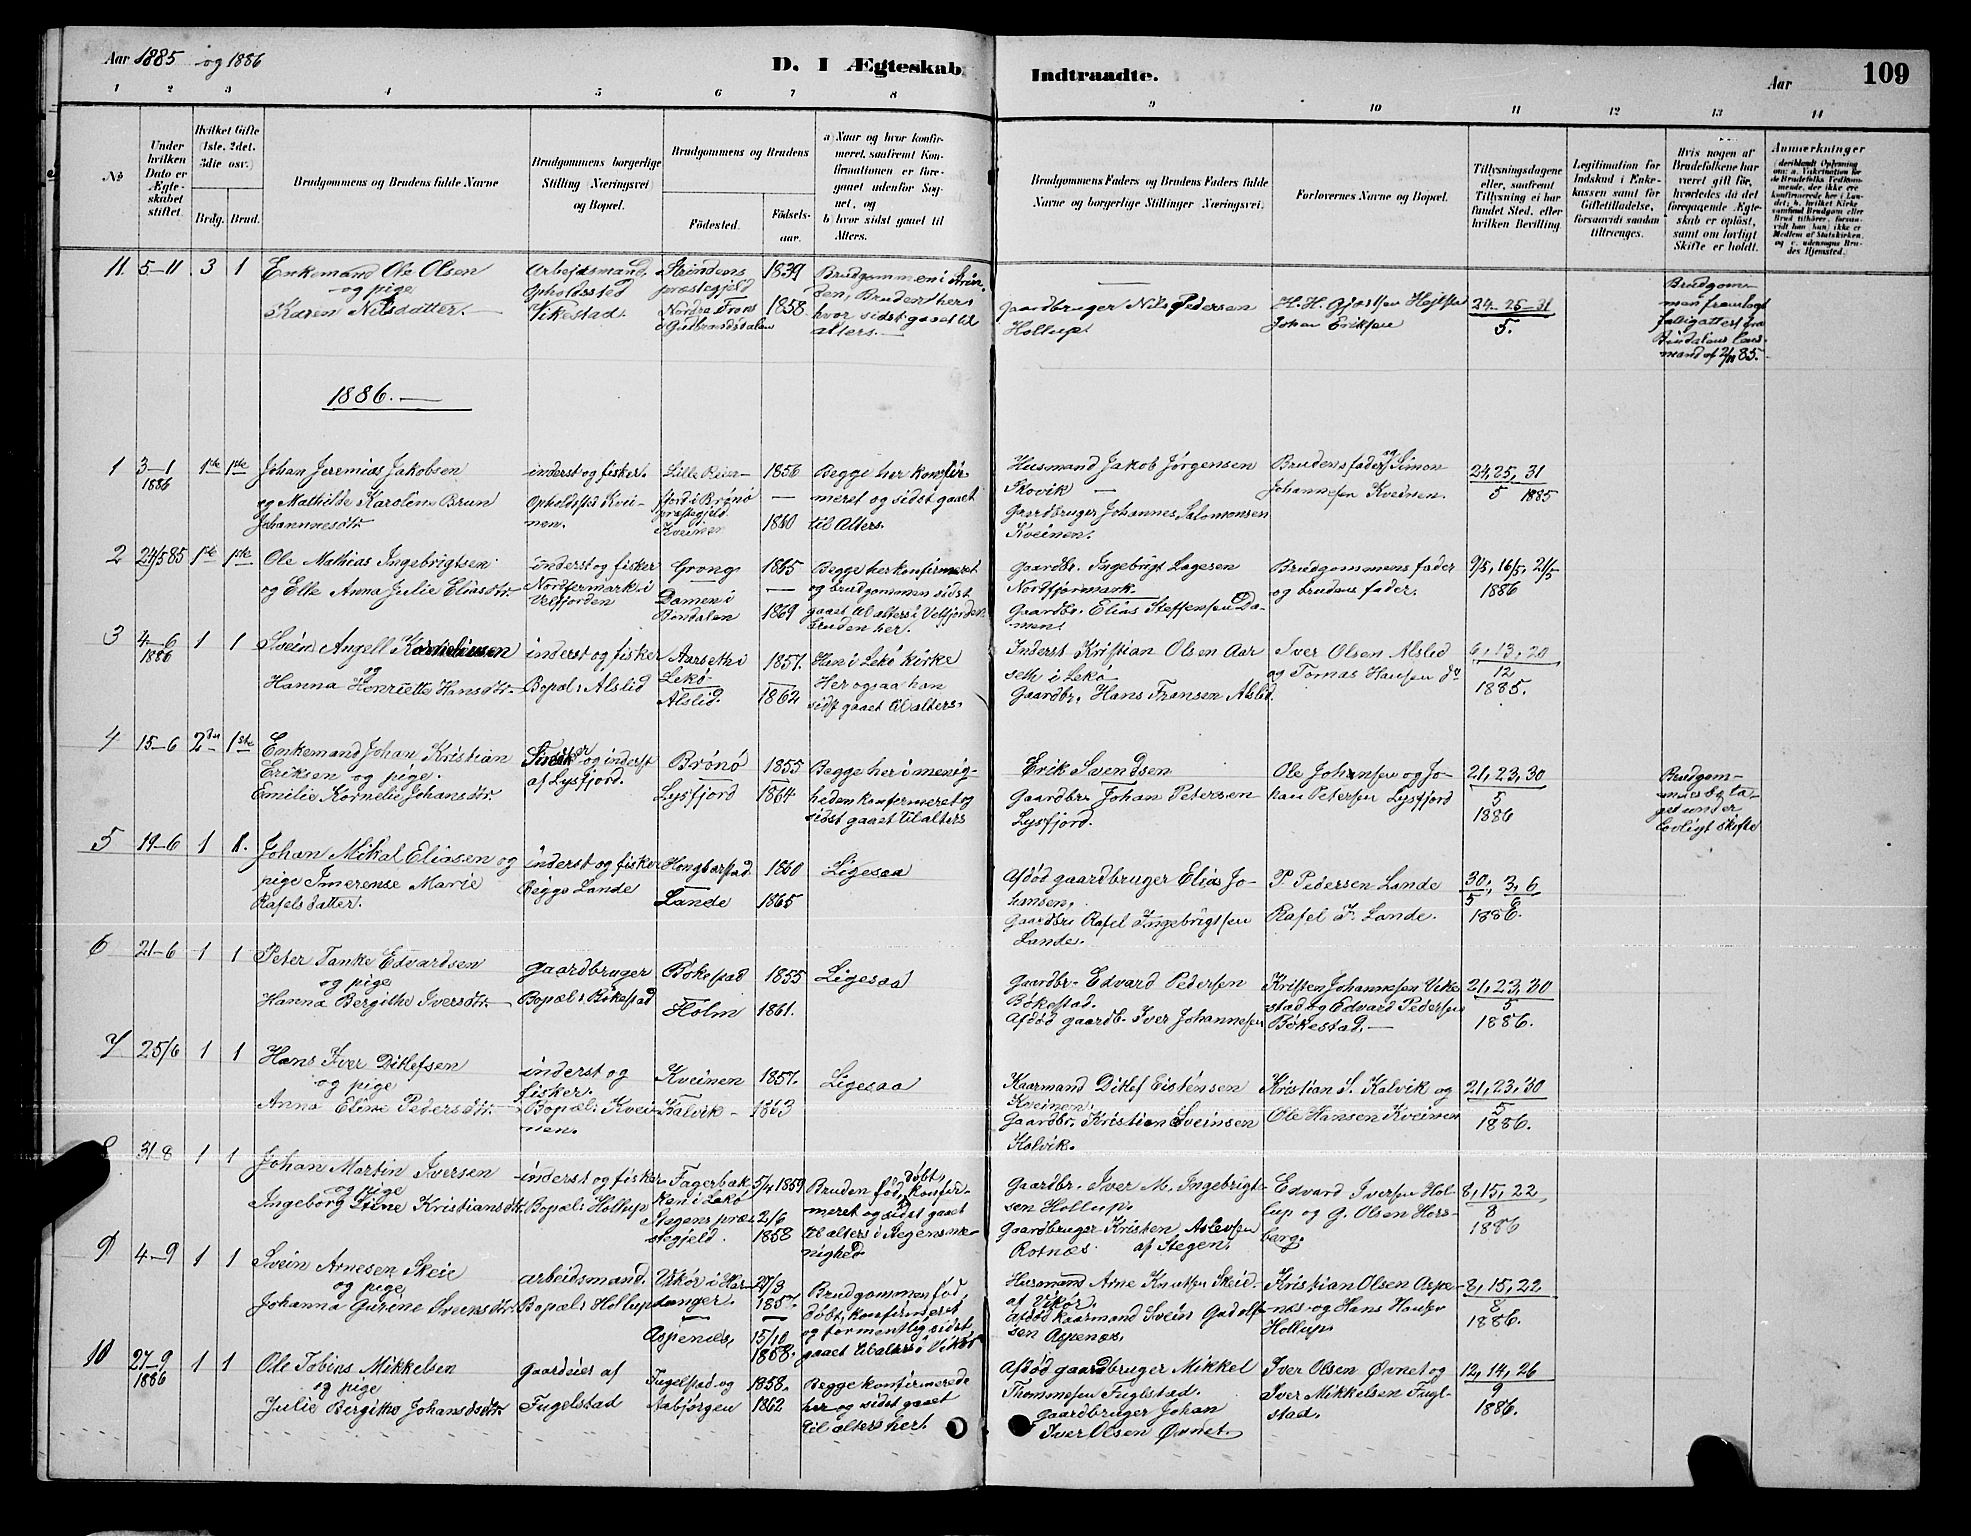 Aar 1885 og 1886
D. I Ægteskab
Indtraadte.
Aar
109
1 2 3 4 5 6 7 8 9 10 11 12 13 14
No
Under hvilken Dato er Ægteskabet stiftet.
Hvilket Gifte (1ste, 2det, 3die osv.)
Brdg. Brud.
Brudgommens og Brudens fulde Navne
Brudgommens borgerlige Stilling (Næringsvei) og Bopæl.
Brudgommens og Brudens
Fødested.
Fødselsaar.
a) Naar og hvor konfirmeret, saafremt Konfirmationen er foregaaet udenfor Sognet, og
b) hvor sidst gaaet til Alters.
Brudgommens Faders og Brudens Faders fulde Navne og borgerlige Stillinger (Næringsvei).
Forlovernes Navne og Bopæl.
Tillysningsdagene eller, saafremt Tillysning ei har fundet Sted, efter hvilken Bevilling
Legitimation for Indskud i Enkekassen samt for Giftetilladelse, forsaavidt saadan tiltrænges.
Hvis nogen af Brudefolkene har været gift før, hvorledes da det foregaaende Ægteskab er opløst, samt om lovligt Skifte er holdt.
Anmærkninger
11 5-11 3 1
Enkemand Ole Olsen
og pige
Karen Nilsdatter.
Arbejdsmand,
Opholdssted
Vikestad.
Strindens
præstegjeld
Nordre Frons
Gudbrandsdalen
1839
1858
Brudgommen i Strinden, Bruden her,
hvor sidst gaaet til
alters.
Gaardbruger Nils Pedersen
Hollup.
Johan Eriksen
24-25-31
5.
Brudgommen fremlagt
af 2/11 85.
1886.
1 3-1 1886 1ste 1ste
Johan Jeremias Jakobsen
og Mathilde Karoline Brun
Johannesdtr
inderst og fisker.
Opholdssted Kveinen.
Lille Reierfjord i Brønø
præstegjeld
Kveinen
1856
1860
Begge her konfirmeret og sidst gaaet
til Alters.
Husmand Jakob Jørgensen
Skovik
Gaardbruger Johannes Salomonsen
Kveinen.
Brudens fader og Simon
Johannesen Kveinen.
24, 25, 31
5 1885
2 24/5 85 1ste 1ste
Ole Mathias Ingebrigtsen
og Elle Anna Julie Eliasdtr
inderst og fisker
Nordfjermark i
Velfjorden
Grong
Damen i
Bindalen
1865
1869
Begge her konfirmeret
og brudgommen sidst
gaaet til alters i Velfjorden
bruden her.
Gaardbr. Ingebrigt Lagesen
Nordfjermark.
Gaardbr. Elias Steffensen Damen.
Brudgommens fader
og brudens fader.
9/5, 16/5, 21/5
1886
3 4-6 1886 1 1
Svein Angell
og
Hanna Henriette Hansdtr
inderst og fisker
Bopæl: Alslid
Aarseth i
Lekø
Alslid.
1857.
1862
Han i Lekø Kirke
Her ogsaa han
sidst gaaet til alters.
Inderst Kristian Olsen Aarseth i Lekø
Gaardbr. Hans Fransen Alslid
Iver Olsen Alslid
og Tomas Hansen do
6, 13, 20
12
1885.
4 15-6 2den 1ste
Enkemand Johan Kristian
Eriksen og pige.
Emilie Kornelie Johansdtr.
Fisker og inderst
af Lysfjord.
Brønø
Lysfjord
1855
1864
Begge her i menigheden konfirmeret og
sidst gaaet til alters
Erik Svendsen
Gaardbr. Johan Petersen
Lysfjord.
Ole Johansen og Johan Petersen Lysfjord
21, 23, 30
5
1886
Lovligt skifte
5 19-6 1 1.
Johan Mikal Eliasen og
pige Imerense Marie
Rafelsdatter.
inderst og fisker
Begge Lande
Lande
1860
1865
Ligesaa
Afdød gaardbruger Elias Johansen.
Gaardbr. Rafel Ingebrigtsen
Lande.
P. Pedersen Lande
Rafel I. Lande.
30, 3, 6
5 6
1886.
6 21-6 1 1
Peter Tanke Edvardsen
og pige
Hanna Bergithe Iversdtr
gaardbruger
Bopæl: Bökestad
Bökestad
Holm
1855
1861.
Ligesaa
Gaardbr. Edvard Pedersen
Bökestad.
Afdød gaardb. Iver Johannesen
Kristen Johannesen Vikestad og Edvard Pedersen
Bökestad.
21, 23, 30
5
1886.
7 25/6 1 1
Hans Iver Ditlefsen
og pige
Anna Eline Pedersdtr.
inderst og
fisker.
Bopæl: Kveinen.
Kveinen
Kalvik
1857.
1863
Ligesaa
Kaarmand Ditlef Eistensen
Kveinen.
Gaardbr. Kristian Sveinsen
Kalvik.
Kristian S. Kalvik og
Ole Hansen Kveinen
21, 23, 30
5
1886.
8 31-8 1 1
Johan Martin Iversen
og pige
Ingeborg Stine Kristiansdtr.
inderst og fisker
Bopæl: Hollup
Fagerbakken i Lekö
Stegens præstegjeld.
5/4 1859
2/6
1858
Bruden fød, døbt, konfirmeret og sidst gaaet
til alters i Stegens menighed
Gaardbr. Iver M. Ingebrigtsen Hollup.
Gaardbruger Kristen Aslevsen
Rotnæs af Stegen.
Edvard Iversen Hollup og G. Olsen Horsberg.
8, 15, 22
8
1886
9 4-9 1 1
Svein Arnesen Skeie
og pige
Johanna Gurine Sveinsdtr.
arbeidsmand.
Bopæl: Hollup
Vikör i Hardanger.
Aspenæs,
27/3
1857.
15/10
1858.
Brudgommen fød,
døbt, konfirmeret
og formentlig sidst
gaaet til alters i Vikör
Husmand Arne Knutsen Skeie
af Vikör.
Afdød kaarmand Svein
Aspenæs.
Kristian Olsen Aspenes og Hans Hansen
Hollup
8, 15, 22
8
1886.
10 27-9 1886 1 1
Ole Tobias Mikkelsen
og pige
Julie Bergithe Johansdtr.
gaardeier af
Fugelstad
Fugelstad og
Aabjørgen
1858.
1862
Begge konfirmerede
her og sidst gaaet
til alters her.
Afdød gaardbruger Mikkel
Thommesen Fuglstad.
gaardbruger Johan
Iver Olsen Øvnet.
Iver Olsen Øvnet og
Iver Mikkelsen Fuglstad.
12, 14, 26
9
1886.